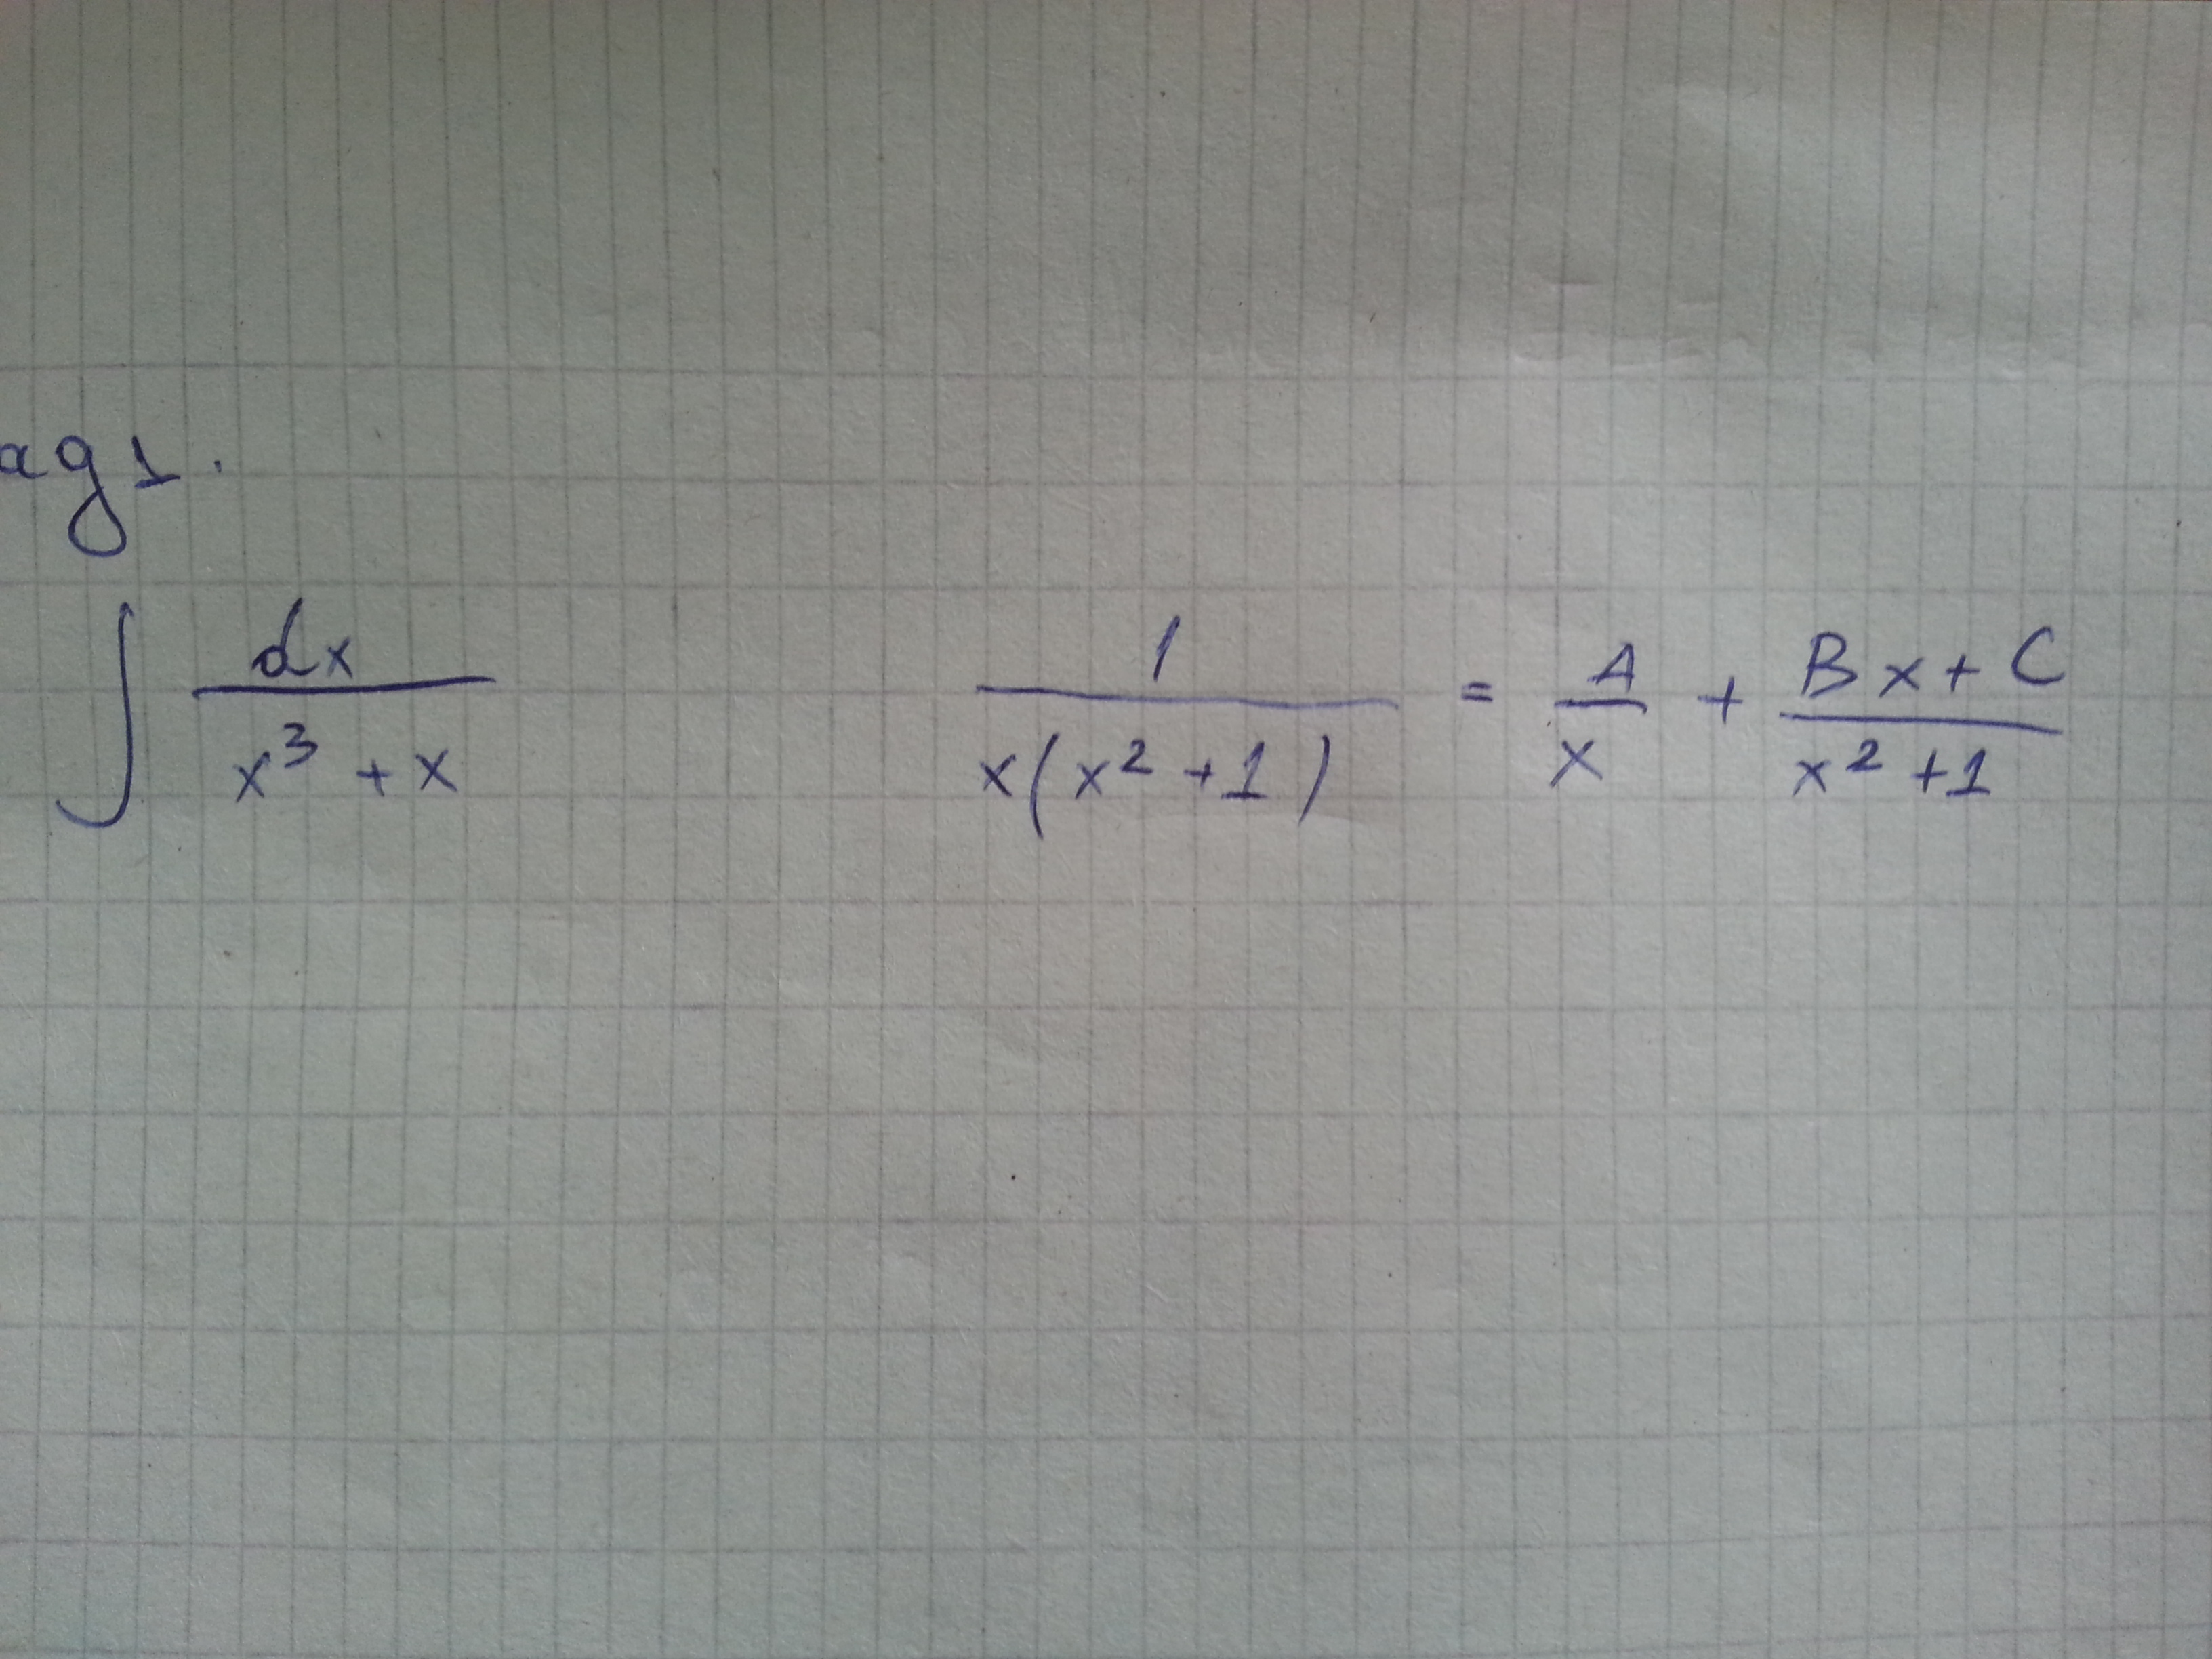 ag 1.
∫ dx / (x³ + x)    1 / (x(x² + 1)) = A / x + (Bx + C) / (x² + 1)